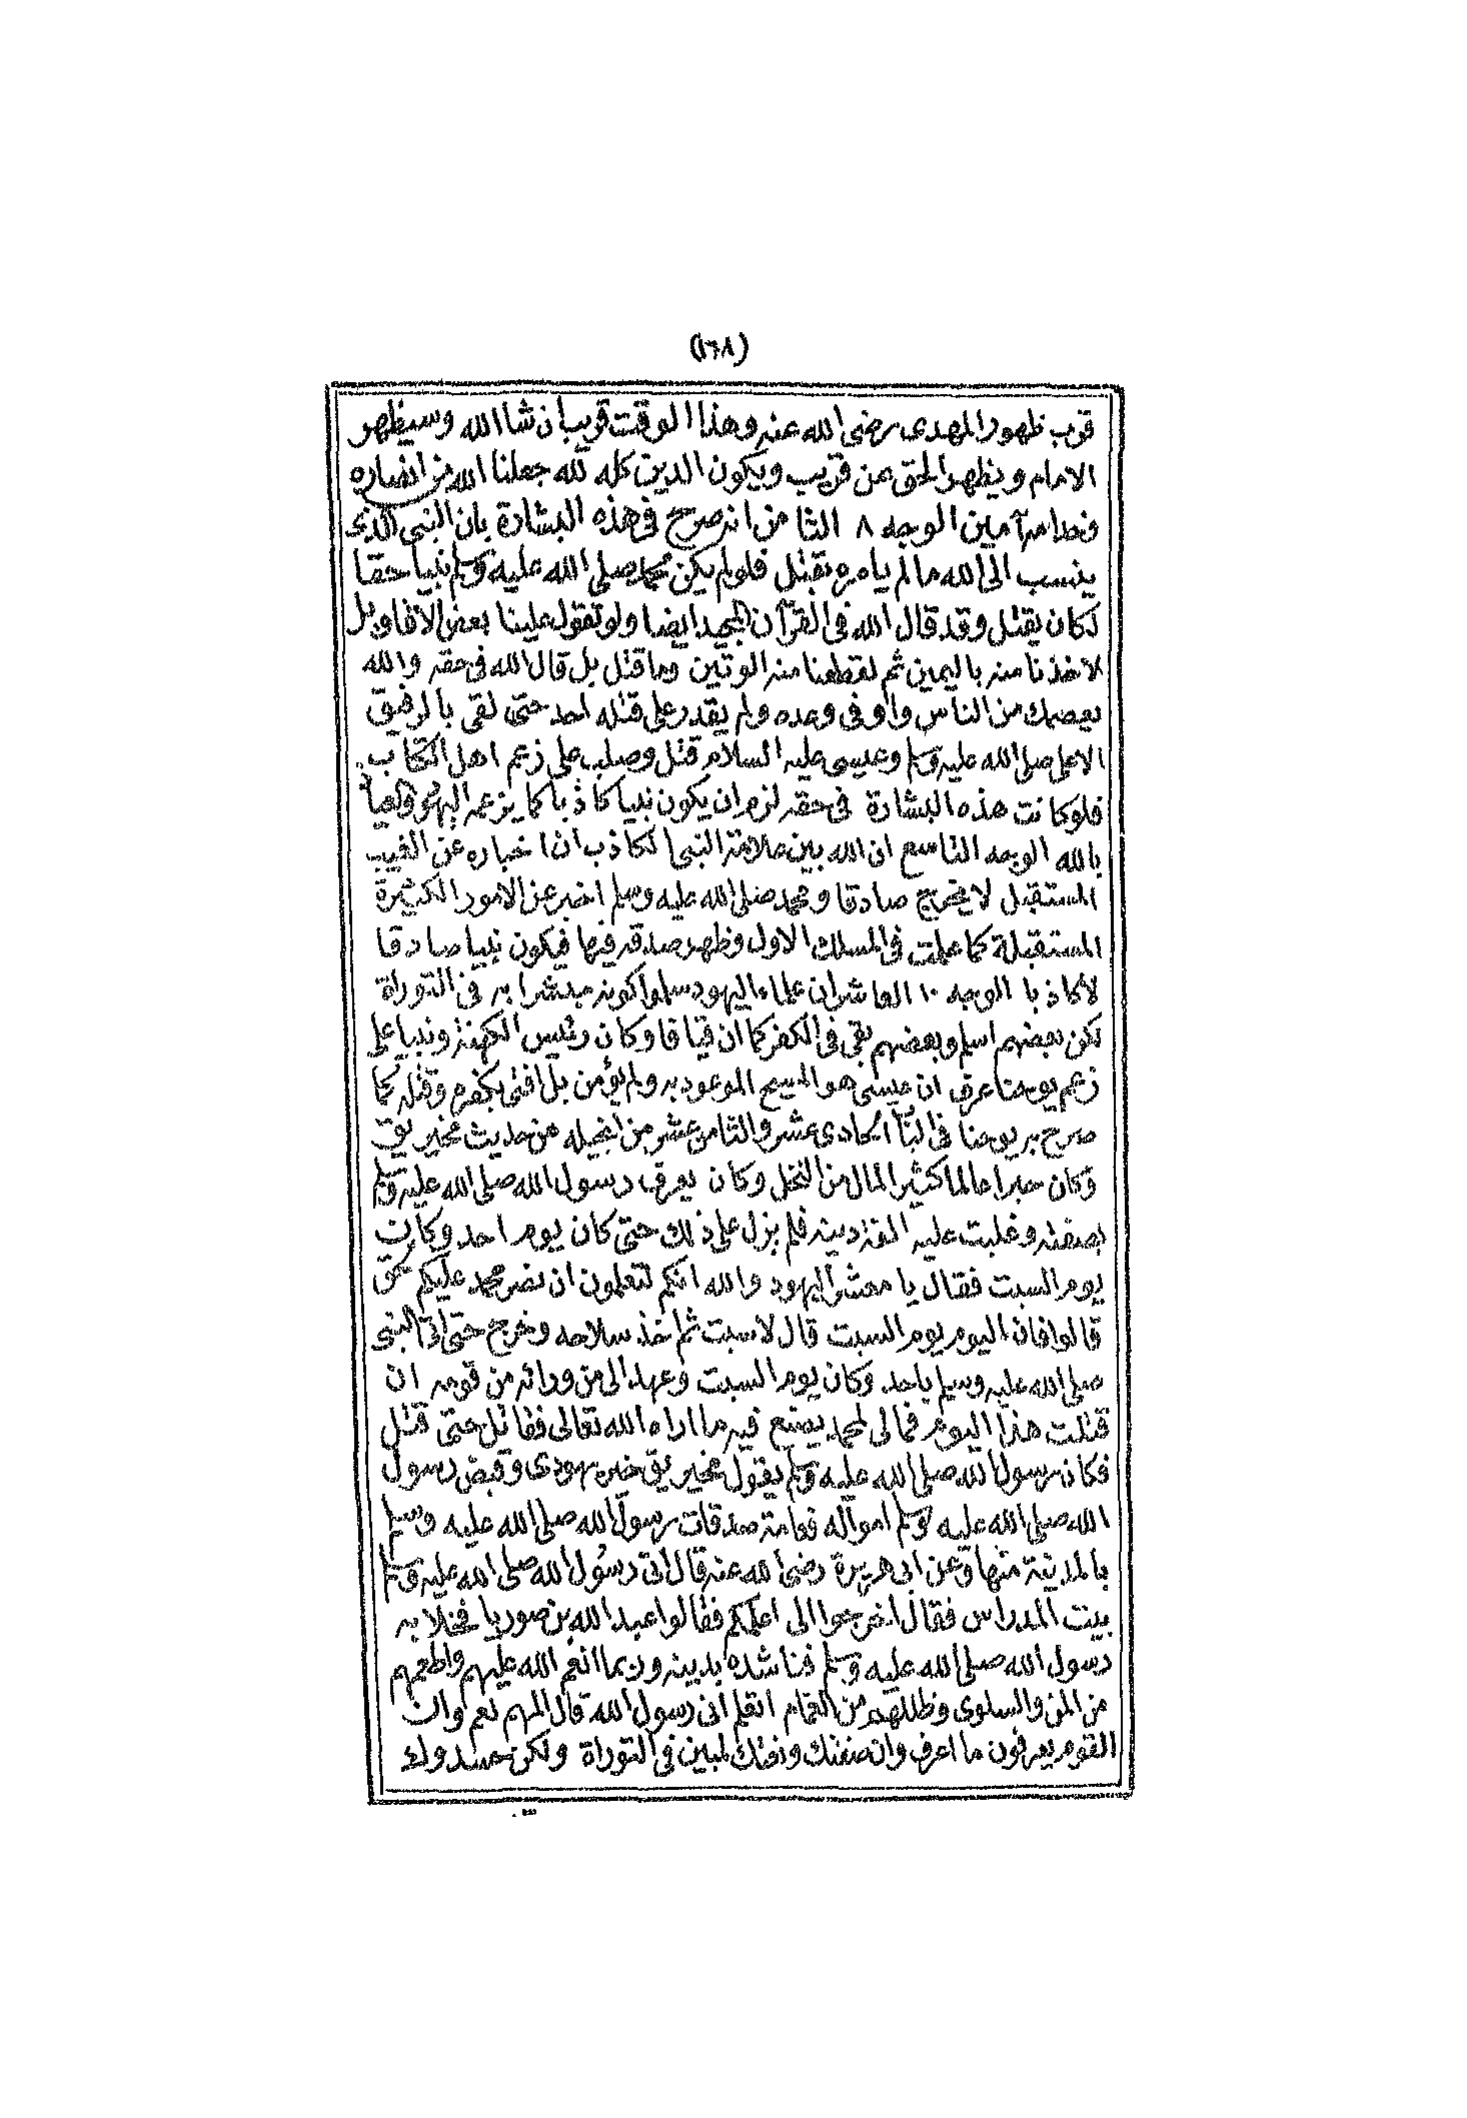 (١٦٨)
قرب ظهور المهدى رضى الله عنه وهذا الوقت قريب ان شا الله وسيظهر
الامام ويظهر الحق عن قريب ويكون الدين كله لله جعلنا الله من انصاره
وخدامه آمين الوجه ٨ الثامن انه صرح فى هذه البشارة بان النبى الذى
ينسب الى الله ما لم يامره يقتل فلو لم يكن محمد صلى الله عليه وسلم نبيا حقا
لكان يقتل وقد قال الله فى القرآن المجيد ايضا ولو تقول علينا بعض الاقاويل
لاخذنا منه باليمين ثم لقطعنا منه الوتين وما قتل بل قال الله فى حقه والله
يعصمك من الناس واوفى وعده ولم يقدر على قتله احد حتى لقى بالرفيق
الاعلى صلى الله عليه وسلم وعيسى عليه السلام قتل وصلب على زعم اهل الكتاب
فلو كانت هذه البشارة فى حقه لزم ان يكون نبيا كاذبا كما يزعمه اليهود والعياذ
بالله الوجه التاسع ان الله بين علامة النبى الكاذب ان اخباره عن الغيب
المستقبل لا يخرج صادقا ومحمد صلى الله عليه وسلم اخبر عن الامور الكثيرة
المستقبلة كما علمت فى المسلك الاول وظهر صدقه فيها فيكون نبيا صادقا
لا كاذبا الوجه ١٠ العاشر ان علماء اليهود سلموا كونه مبشرا به فى التوراة
لكن بعضهم اسلم وبعضهم بقى فى الكفر كما ان قيافا وكان رئيس الكهنة ونبيا على
زعم يوحنا عرف ان عيسى هو المسيح الموعود به ولم يؤمن بل افتى بكفره وقتله كما
صرح به يوحنا فى الباب الحادى عشر والثامن عشر من انجيله من حديث مخيريق
وكان حبرا عالما كثير المال من النخل وكان يعرف رسول الله صلى الله عليه وسلم
بصفته وغلبت عليه الفة دينه فلم يزل على ذلك حتى كان يوم احد وكان
يوم السبت فقال يا معشر اليهود والله انكم لتعلمون ان نصر محمد عليكم لحق
قالوا فان اليوم يوم السبت قال لا سبت ثم اخذ سلاحه وخرج حتى اتى النبى
صلى الله عليه وسلم باحد وكان يوم السبت وعهد الى من ورائه من قومه ان
قتلت هذا اليوم فمالى لمحمد يصنع فيه ما اراه الله تعالى فقاتل حتى قتل
فكان رسول الله صلى الله عليه وسلم يقول مخيريق خير يهودى وقبض رسول
الله صلى الله عليه وسلم امواله فعامة صدقات رسول الله صلى الله عليه وسلم
بالمدينة منها وعن ابى هريرة رضى الله عنه قال اتى رسول الله صلى الله عليه وسلم
بيت المدراس فقال اخرجوا الى اعلمكم فقالوا عبد الله بن صوريا فخلا به
رسول الله صلى الله عليه وسلم فناشده بدينه وبما انعم الله عليهم واطعمهم
من المن والسلوى وظللهم من الغمام اتعلم انى رسول الله قال اللهم نعم وان
القوم يعرفون ما اعرف وان صفتك ونعتك لمبين فى التوراة ولكن حسدوك